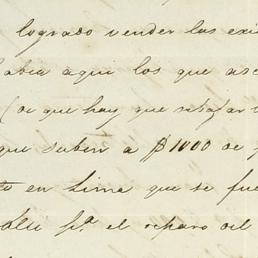 logrado vender las exi
abia aqui los que asc
(de que hay que rebajar
que suben a $1000 de
en Lima que se fue
ble pa. el reparo del